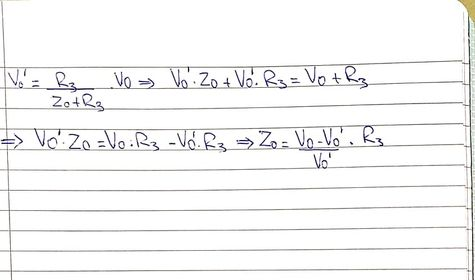 V₀' = R₃ / (Z₀+R₃) · V₀ ⟹ V₀'·Z₀ + V₀'·R₃ = V₀ + R₃
⟹ V₀'·Z₀ = V₀·R₃ - V₀'·R₃ ⟹ Z₀ = (V₀-V₀') / V₀' · R₃